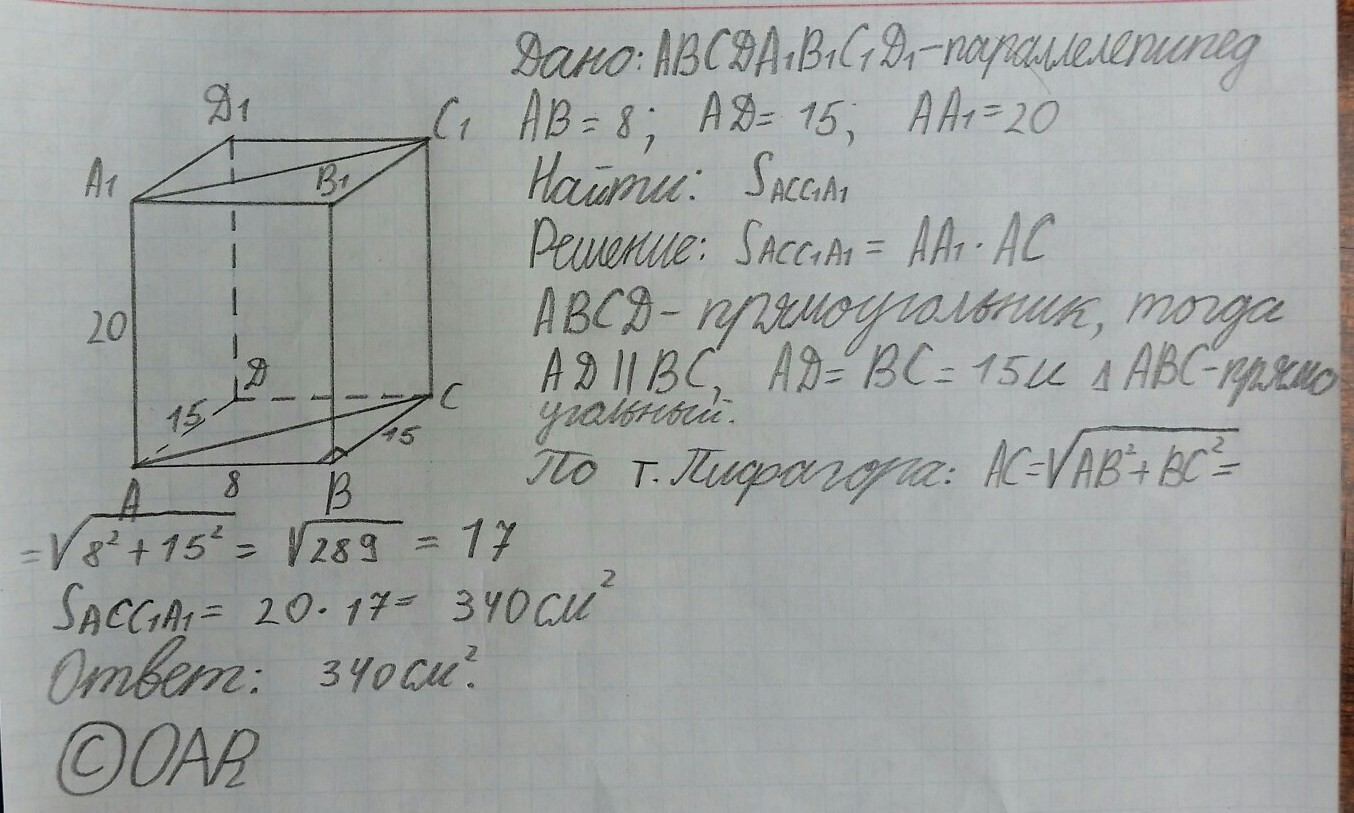 Дано: ABCDA₁B₁C₁D₁-параллелепипед
AB = 8; AD = 15; AA₁=20
Найти: SACC₁A₁
Решение: SACC₁A₁ = AA₁ · AC
ABCD - прямоугольник, тогда
AD || BC, AD = BC = 15 и Δ ABC-прямо
угольный.
По т. Пифагора: AC=√AB²+BC² =
= √8² + 15² = √289 = 17
SACC₁A₁ = 20 · 17 = 340 см²
Ответ: 340 см².
© OAR
D₁
C₁
A₁
B₁
20
D
15
C
15
A
8
B